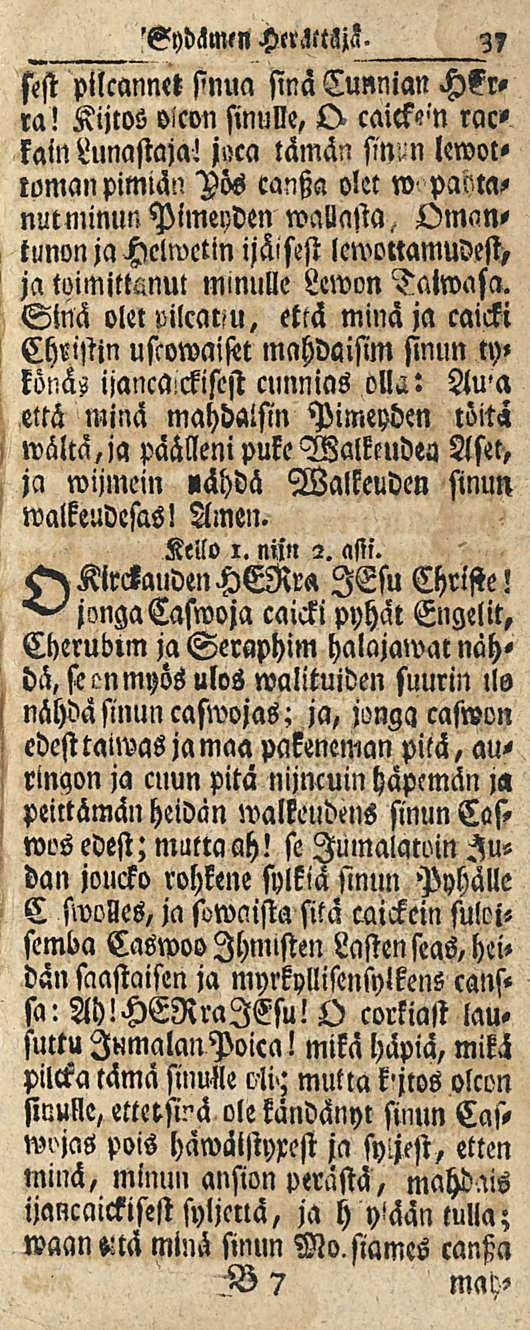 Sydämen Herättäjä. 37
sest pilcannet sinua sinä Cunnian HEr-
ra! Kijtos olcon sinulle, O caickein rac-
kain Lunastaja! joca tämän sinun lewot-
toman pimiän Yös canßa olet w pahta-
nut minun Pimeyden wallasta, Oman-
tunon ja Helwetin ijäisest lewottamudest,
ja toimittanut minulle Lewon Taiwasa.
Sinä olet pilcattu, että minä ja caicki
Christin uscowaiset mahdaisim sinun ty-
könäs ijancaickisest cunnias olla: Auta
että minä mahdaisin Pimeyden töitä
wältä, ja päälleni puke Walkeuden Aset,
ja wijmein nähdä Walkeuden sinun
walkeudesas! Amen.
Kello 1. nijn 2. asti.
O Kirckauden HERra JEsu Christe!
jonga Caswoja caicki pyhät Engelit,
Cherubim ja Seraphim halajawat näh-
dä, se on myös ulos walituiden suurin ilo
nähdä sinun caswojas; ja, jonga caswon
edest taiwas ja maa pakeneman pitä, au-
ringon ja cuun pitä nijncuin häpemän ja
peittämän heidän walkeudens sinun Cas-
wos edest; mutta ah! se Jumalatoin Ju-
dan joucko rohkene sylkiä sinun Pyhälle
C swolles, ja sowaista sitä caickein suloi-
semba Caswoo Ihmisten Lasten seas, hei-
dän saastaisen ja myrkyllisen sylkens cans-
sa: Ah! HERra JEsu! O corkiast lau-
suttu Jumalan Poica! mikä häpiä, mikä
pilcka tämä sinulle oli; mutta kijtos olcon
sinulle, ettet sinä ole kändänyt sinun Cas-
wojas pois häwäistyxest ja syljest, etten
minä, minun ansion perästä, mahdais
ijancaickisest syljettä, ja h yljään tulla;
waan että minä sinun Mo. siames canßa
B 7 mah-